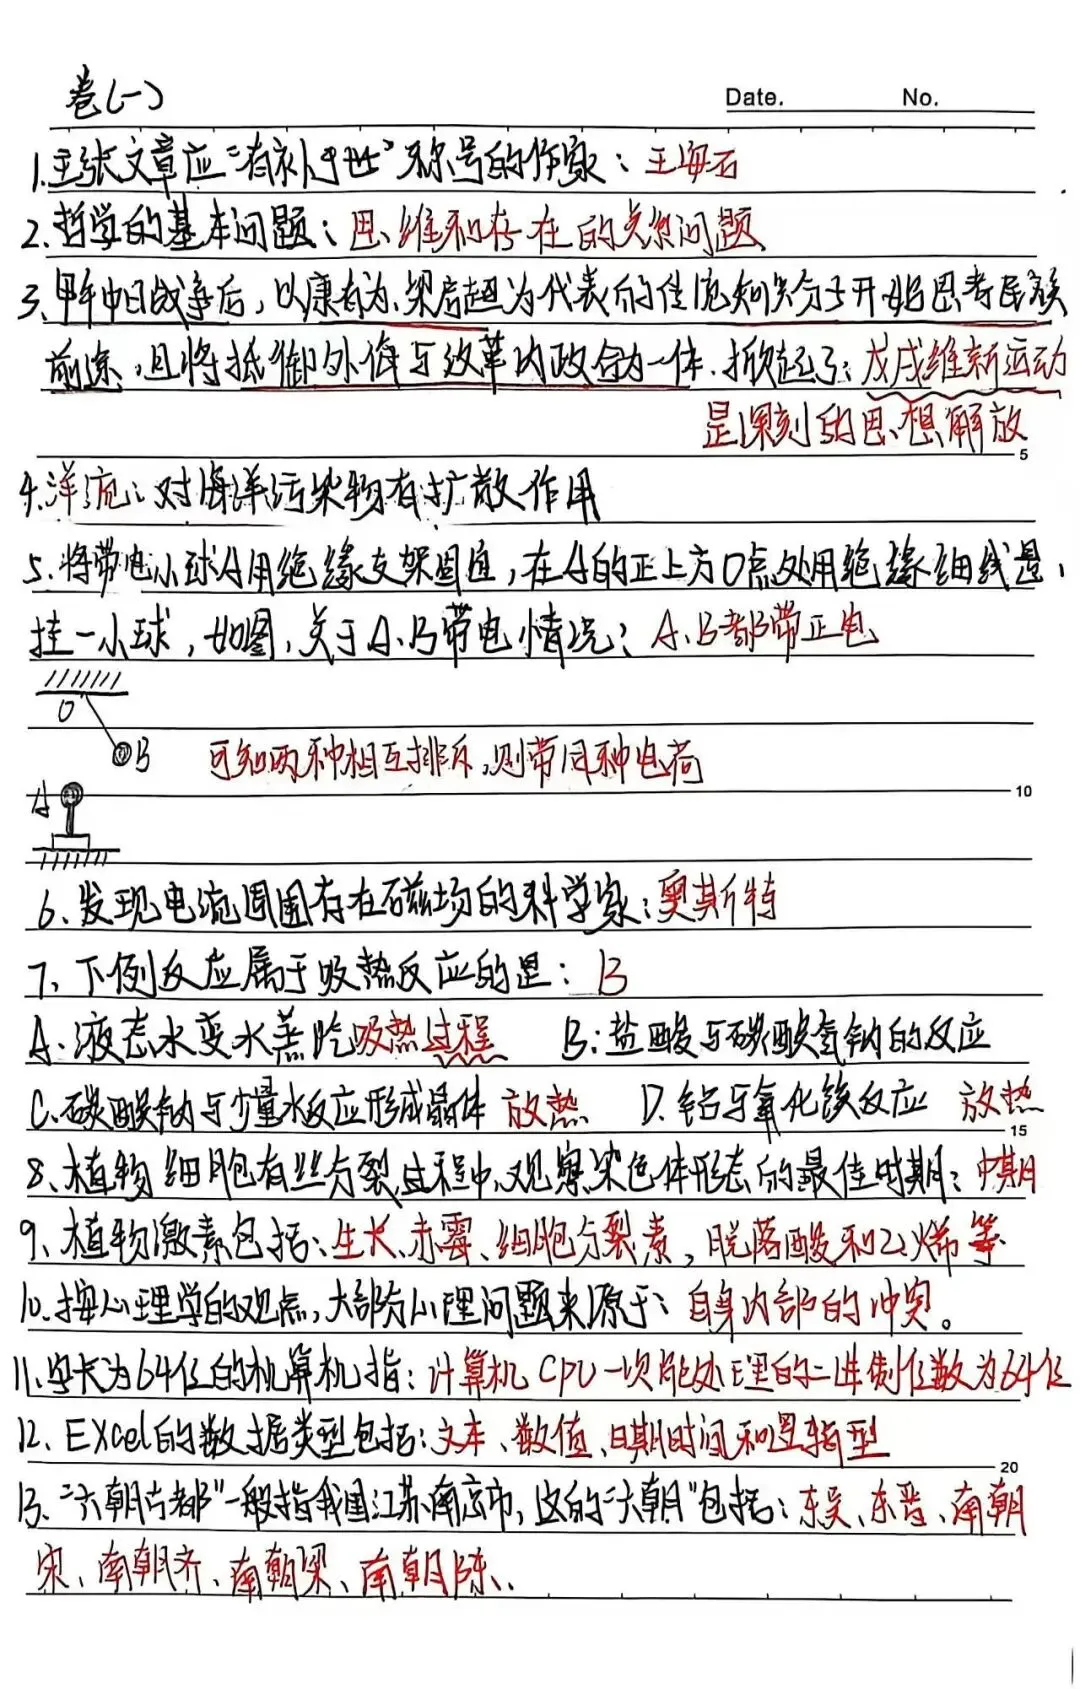 卷(一)
Date. No.
1.主张文章应“有补于世”称号的作家：王安石
2.哲学的基本问题：思维和存在的关系问题
3.甲午中日战争后，以康有为、梁启超为代表的维新知识分子开始思考民族
前途，且将抵御外侮与改革内政合为一体，掀起了：戊戌维新运动
是深刻的思想解放
5
4.洋流：对海洋污染物有扩散作用
5.将带电小球A用绝缘支架固定，在A的正上方O点处用绝缘细线悬
挂一小球，如图，关于A、B带电情况：A、B都带正电
O
B 可知两种相互排斥，则带同种电荷
A
10
6、发现电流周围存在磁场的科学家：奥斯特
7、下例反应属于吸热反应的是：B
A.液态水变水蒸汽吸热过程 B：盐酸与碳酸氢钠的反应
C.碳酸钠与少量水反应形成晶体 放热 D.铝与氧化铁反应 放热
15
8、植物细胞有丝分裂过程中，观察染色体形态的最佳时期：中期
9、植物激素包括：生长、赤霉、细胞分裂素，脱落酸和乙烯等
10.按心理学的观点，大部分心理问题来源于：自身内部的冲突。
11.字长为64位的机算机指：计算机CPU一次能处理的二进制位数为64位
12.EXcel的数据类型包括：文本、数值、日期时间和逻辑型
20
13.“六朝古都”一般指我国江苏南京市，这的“六朝”包括：东吴、东晋、南朝
宋、南朝齐、南朝梁、南朝陈、